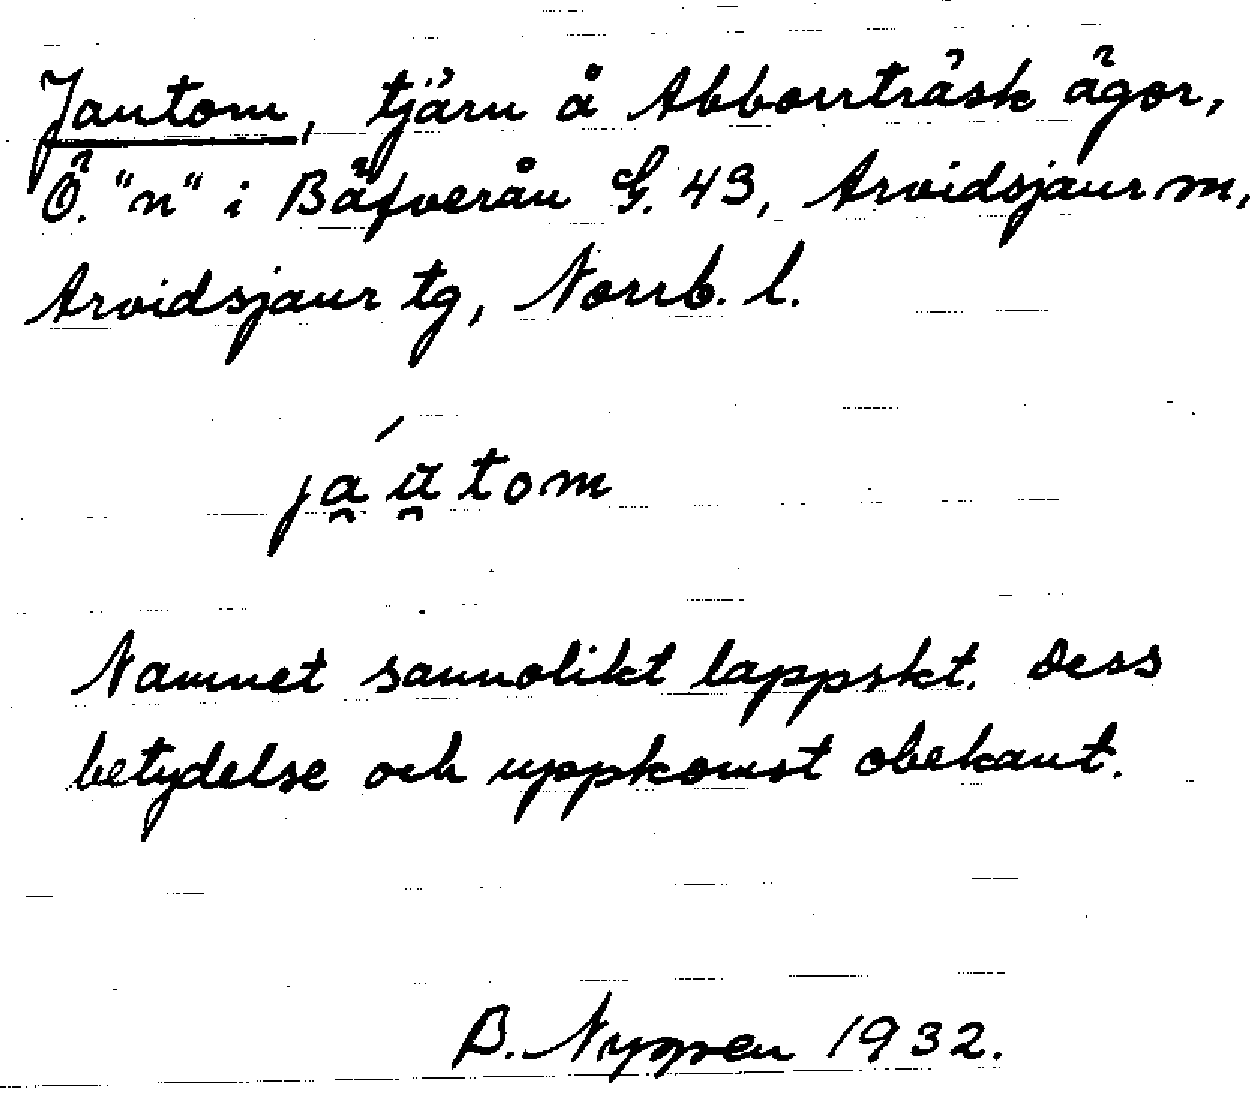 Jautom, tjärn å Abborrträsk ägor,
Ö. "n" i Bäfverån G. 43, Arvidsjaur sn,
Arvidsjaur tg, Norrb. l.
jáutom
Namnet sannolikt lappskt. Dess
betydelse och uppkomst obekant.
B. Nygren 1932.